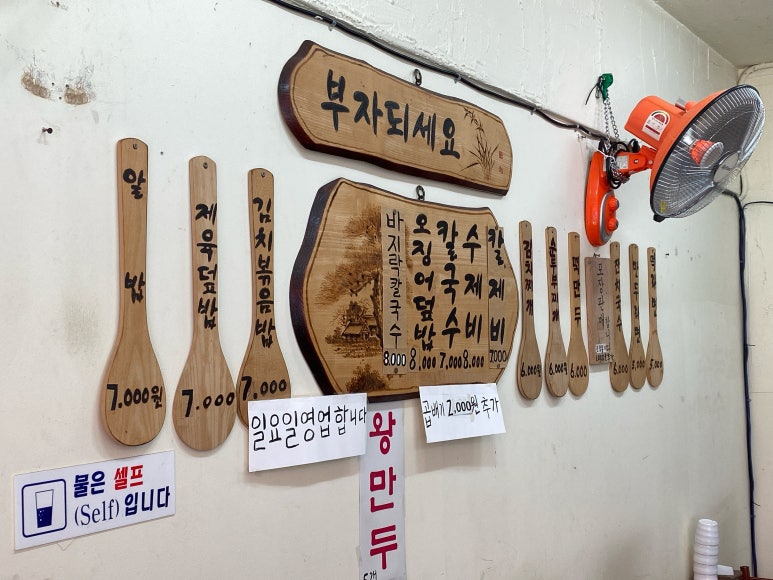 부자되세요
알밥
7.000원
제육덮밥
7.000
김치볶음밥
7.000
바지락칼국수
8.000
오징어덮밥
8,000
칼국수
7,000
수제비
8,000
칼제비
7000
김치찌개
6.000
순두부찌개
6.000
떡만두
6.000
6.000
만두라면
5.000
떡라면
5.000
일요일영업합니다
곱배기 2.000원 추가
왕만두
5개
물은 셀프
(Self) 입니다